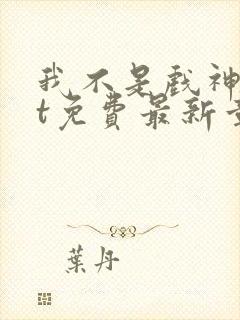 我不是戲神
t免費最新
葉丹